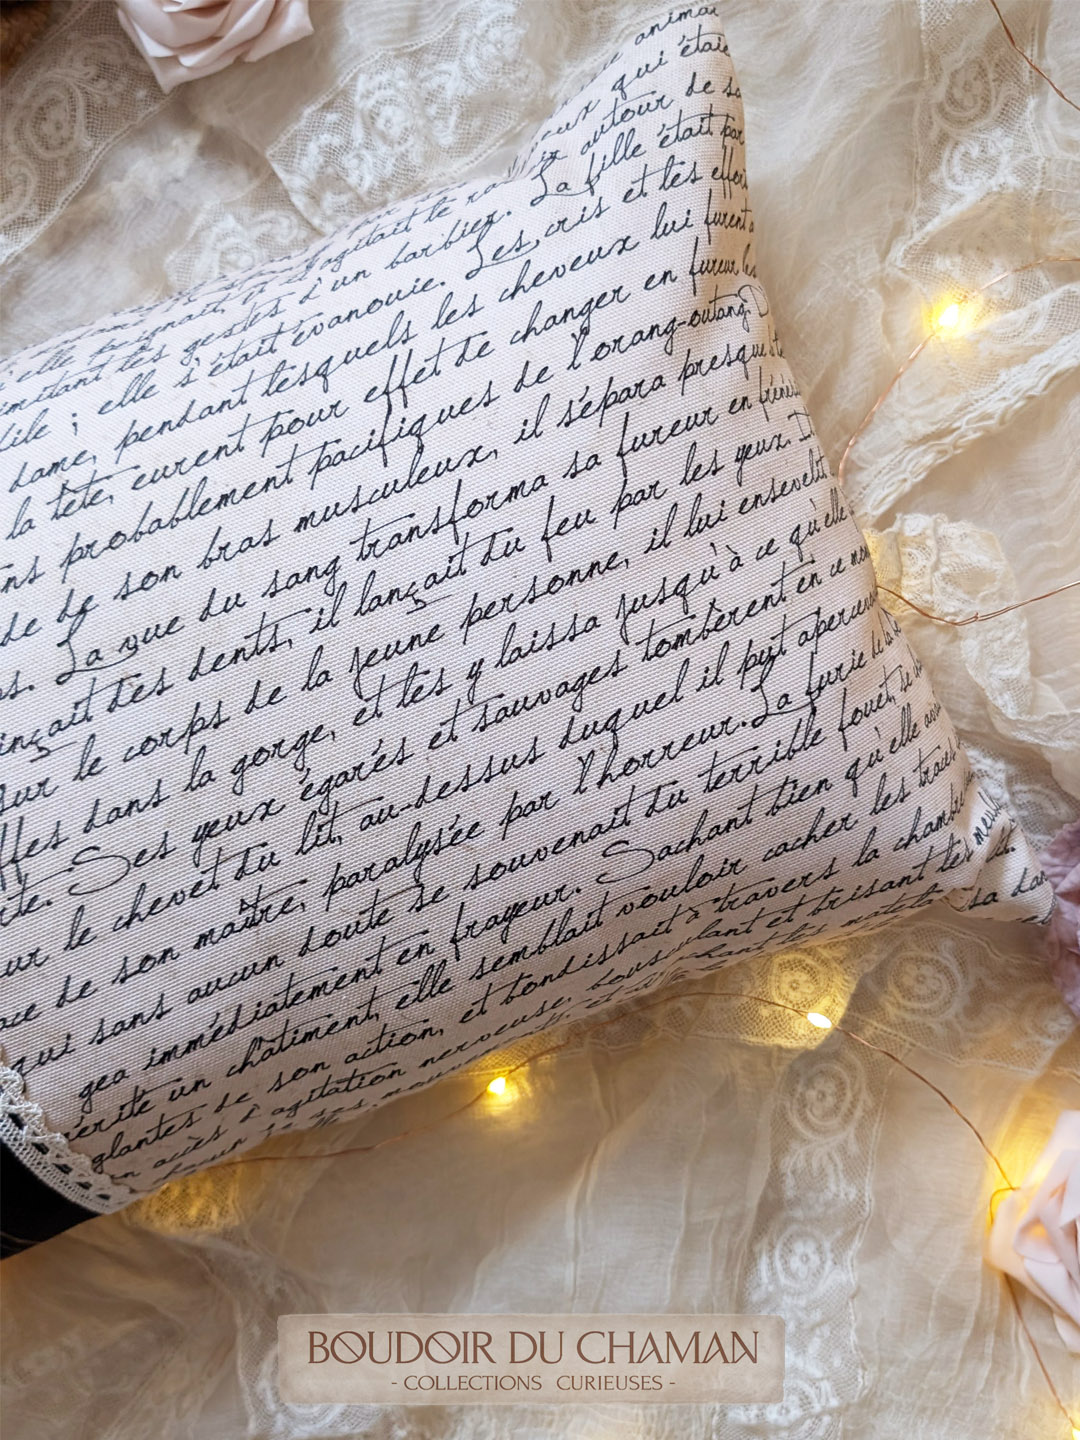 animal
eux qui étaie
autour de sa
agitait le La fille était par
imitant les gestes d'un barbier. Les cris et les effort
; elle s'était évanouie.
dame, pendant lesquels les cheveux lui furent
la tête, eurent pour effet de changer en fureur les
ns probablement pacifiques de l'orang-outang. D
de de son bras musculeux, il sépara presque
s. La vue du sang transforma sa fureur en
inçait des dents, il lançait du feu par les yeux. I
sur le corps de la jeune personne, il lui ensevelit
ffes dans la gorge, et les y laissa jusqu'à ce qu'elle
rte. Ses yeux égarés et sauvages tombèrent en ce mo
ur le chevet du lit, au-dessus duquel il put apercev
ace de son maître, paralysée par l'horreur. La furie de la
qui sans aucun doute se souvenait du terrible fouet, se
gea immédiatement en frayeur. Sachant bien qu'elle avai
érité un châtiment, elle semblait vouloir cacher les traces
glantes de son action, et bondissait à travers la chambre
n accès d'agitation nerveuse, bousculant et brisant les meubles
matelas lit.
sa dan
BOUDOIR DU CHAMAN
- COLLECTIONS CURIEUSES -